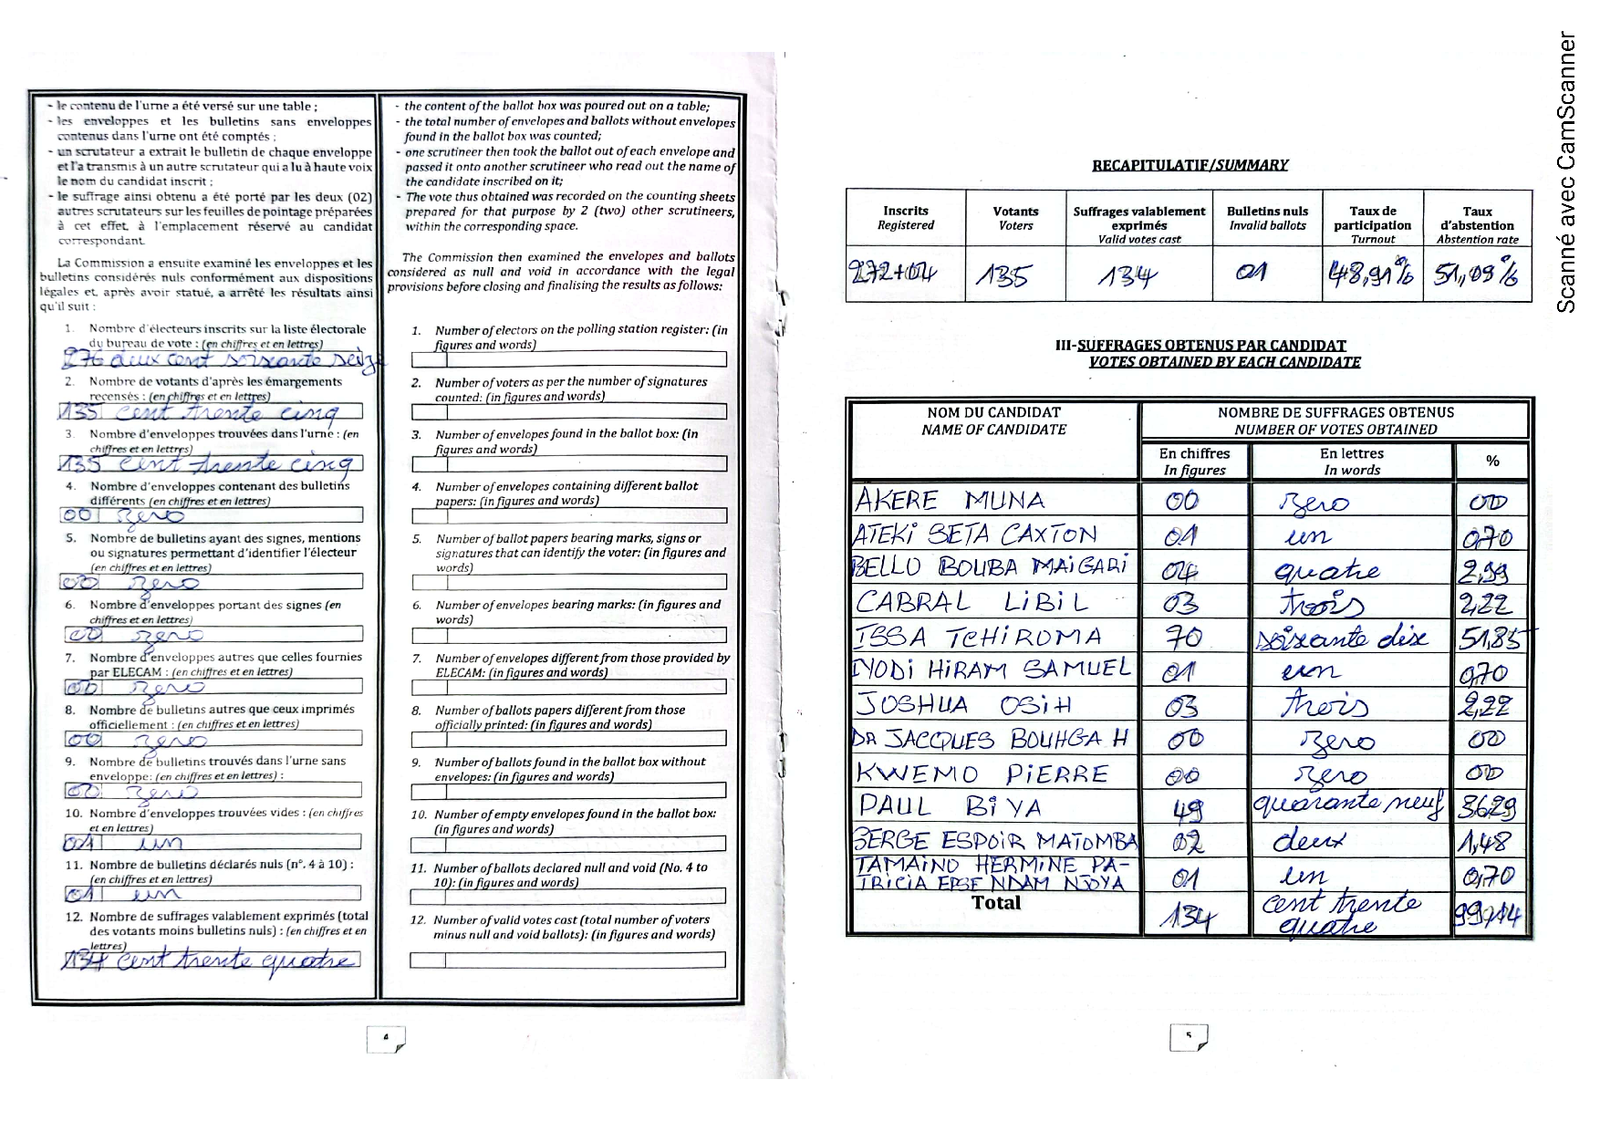 - le contenu de l'urne a été versé sur une table ;
- les enveloppes et les bulletins sans enveloppes
contenus dans l'urne ont été comptés ;
- un scrutateur a extrait le bulletin de chaque enveloppe
et l'a transmis à un autre scrutateur qui a lu à haute voix
le nom du candidat inscrit ;
- le suffrage ainsi obtenu a été porté par les deux (02)
autres scrutateurs sur les feuilles de pointage préparées
à cet effet, à l'emplacement réservé au candidat
correspondant.
La Commission a ensuite examiné les enveloppes et les
bulletins considérés nuls conformément aux dispositions
légales et, après avoir statué, a arrêté les résultats ainsi
qu'il suit :
1. Nombre d'électeurs inscrits sur la liste électorale
du bureau de vote : (en chiffres et en lettres)
276 deux cent soixante seize
2. Nombre de votants d'après les émargements
recensés : (en chiffres et en lettres)
135 cent trente cinq
3. Nombre d'enveloppes trouvées dans l'urne : (en
chiffres et en lettres)
135 cent trente cinq
4. Nombre d'enveloppes contenant des bulletins
différents (en chiffres et en lettres)
00 zero
5. Nombre de bulletins ayant des signes, mentions
ou signatures permettant d'identifier l'électeur
(en chiffres et en lettres)
00 zero
6. Nombre d'enveloppes portant des signes (en
chiffres et en lettres)
00 zero
7. Nombre d'enveloppes autres que celles fournies
par ELECAM : (en chiffres et en lettres)
00 zero
8. Nombre de bulletins autres que ceux imprimés
officiellement : (en chiffres et en lettres)
00 zero
9. Nombre de bulletins trouvés dans l'urne sans
enveloppe: (en chiffres et en lettres) :
00 zero
10. Nombre d'enveloppes trouvées vides : (en chiffres
et en lettres)
01 un
11. Nombre de bulletins déclarés nuls (n°. 4 à 10) :
(en chiffres et en lettres)
01 un
12. Nombre de suffrages valablement exprimés (total
des votants moins bulletins nuls) : (en chiffres et en
lettres)
134 cent trente quatre
- the content of the ballot box was poured out on a table;
- the total number of envelopes and ballots without envelopes
found in the ballot box was counted;
- one scrutineer then took the ballot out of each envelope and
passed it onto another scrutineer who read out the name of
the candidate inscribed on it;
- The vote thus obtained was recorded on the counting sheets
prepared for that purpose by 2 (two) other scrutineers,
within the corresponding space.
The Commission then examined the envelopes and ballots
considered as null and void in accordance with the legal
provisions before closing and finalising the results as follows:
1. Number of electors on the polling station register: (in
figures and words)
2. Number of voters as per the number of signatures
counted: (in figures and words)
3. Number of envelopes found in the ballot box: (in
figures and words)
4. Number of envelopes containing different ballot
papers: (in figures and words)
5. Number of ballot papers bearing marks, signs or
signatures that can identify the voter: (in figures and
words)
6. Number of envelopes bearing marks: (in figures and
words)
7. Number of envelopes different from those provided by
ELECAM: (in figures and words)
8. Number of ballots papers different from those
officially printed: (in figures and words)
9. Number of ballots found in the ballot box without
envelopes: (in figures and words)
10. Number of empty envelopes found in the ballot box:
(in figures and words)
11. Number of ballots declared null and void (No. 4 to
10): (in figures and words)
12. Number of valid votes cast (total number of voters
minus null and void ballots): (in figures and words)
4
RECAPITULATIF/SUMMARY
Inscrits Votants Suffrages valablement exprimés Bulletins nuls Taux de participation Taux d'abstention
Registered Voters Valid votes cast Invalid ballots Turnout Abstention rate
272+04 135 134 01 48,91% 51,09%
III-SUFFRAGES OBTENUS PAR CANDIDAT
VOTES OBTAINED BY EACH CANDIDATE
NOM DU CANDIDAT NOMBRE DE SUFFRAGES OBTENUS
NAME OF CANDIDATE NUMBER OF VOTES OBTAINED
En chiffres En lettres %
In figures In words
AKERE MUNA 00 zero 00
ATEKI SETA CAXTON 01 un 0,70
BELLO BOUBA MAIGARI 04 quatre 2,99
CABRAL LIBIL 03 trois 2,22
ISSA TCHIROMA 70 soixante dix 51,85
IYODI HIRAM SAMUEL 01 un 0,70
JOSHUA OSIH 03 trois 2,22
DR JACQUES BOUHGA H 00 zero 00
KWEMO PIERRE 00 zero 00
PAUL BIYA 49 quarante neuf 36,29
SERGE ESPOIR MATOMBA 02 deux 1,48
TAMAINO HERMINE PA-
TRICIA EPSE NDAM NJOYA 01 un 0,70
Total 134 cent trente quatre 99,14
5
Scanné avec CamScanner